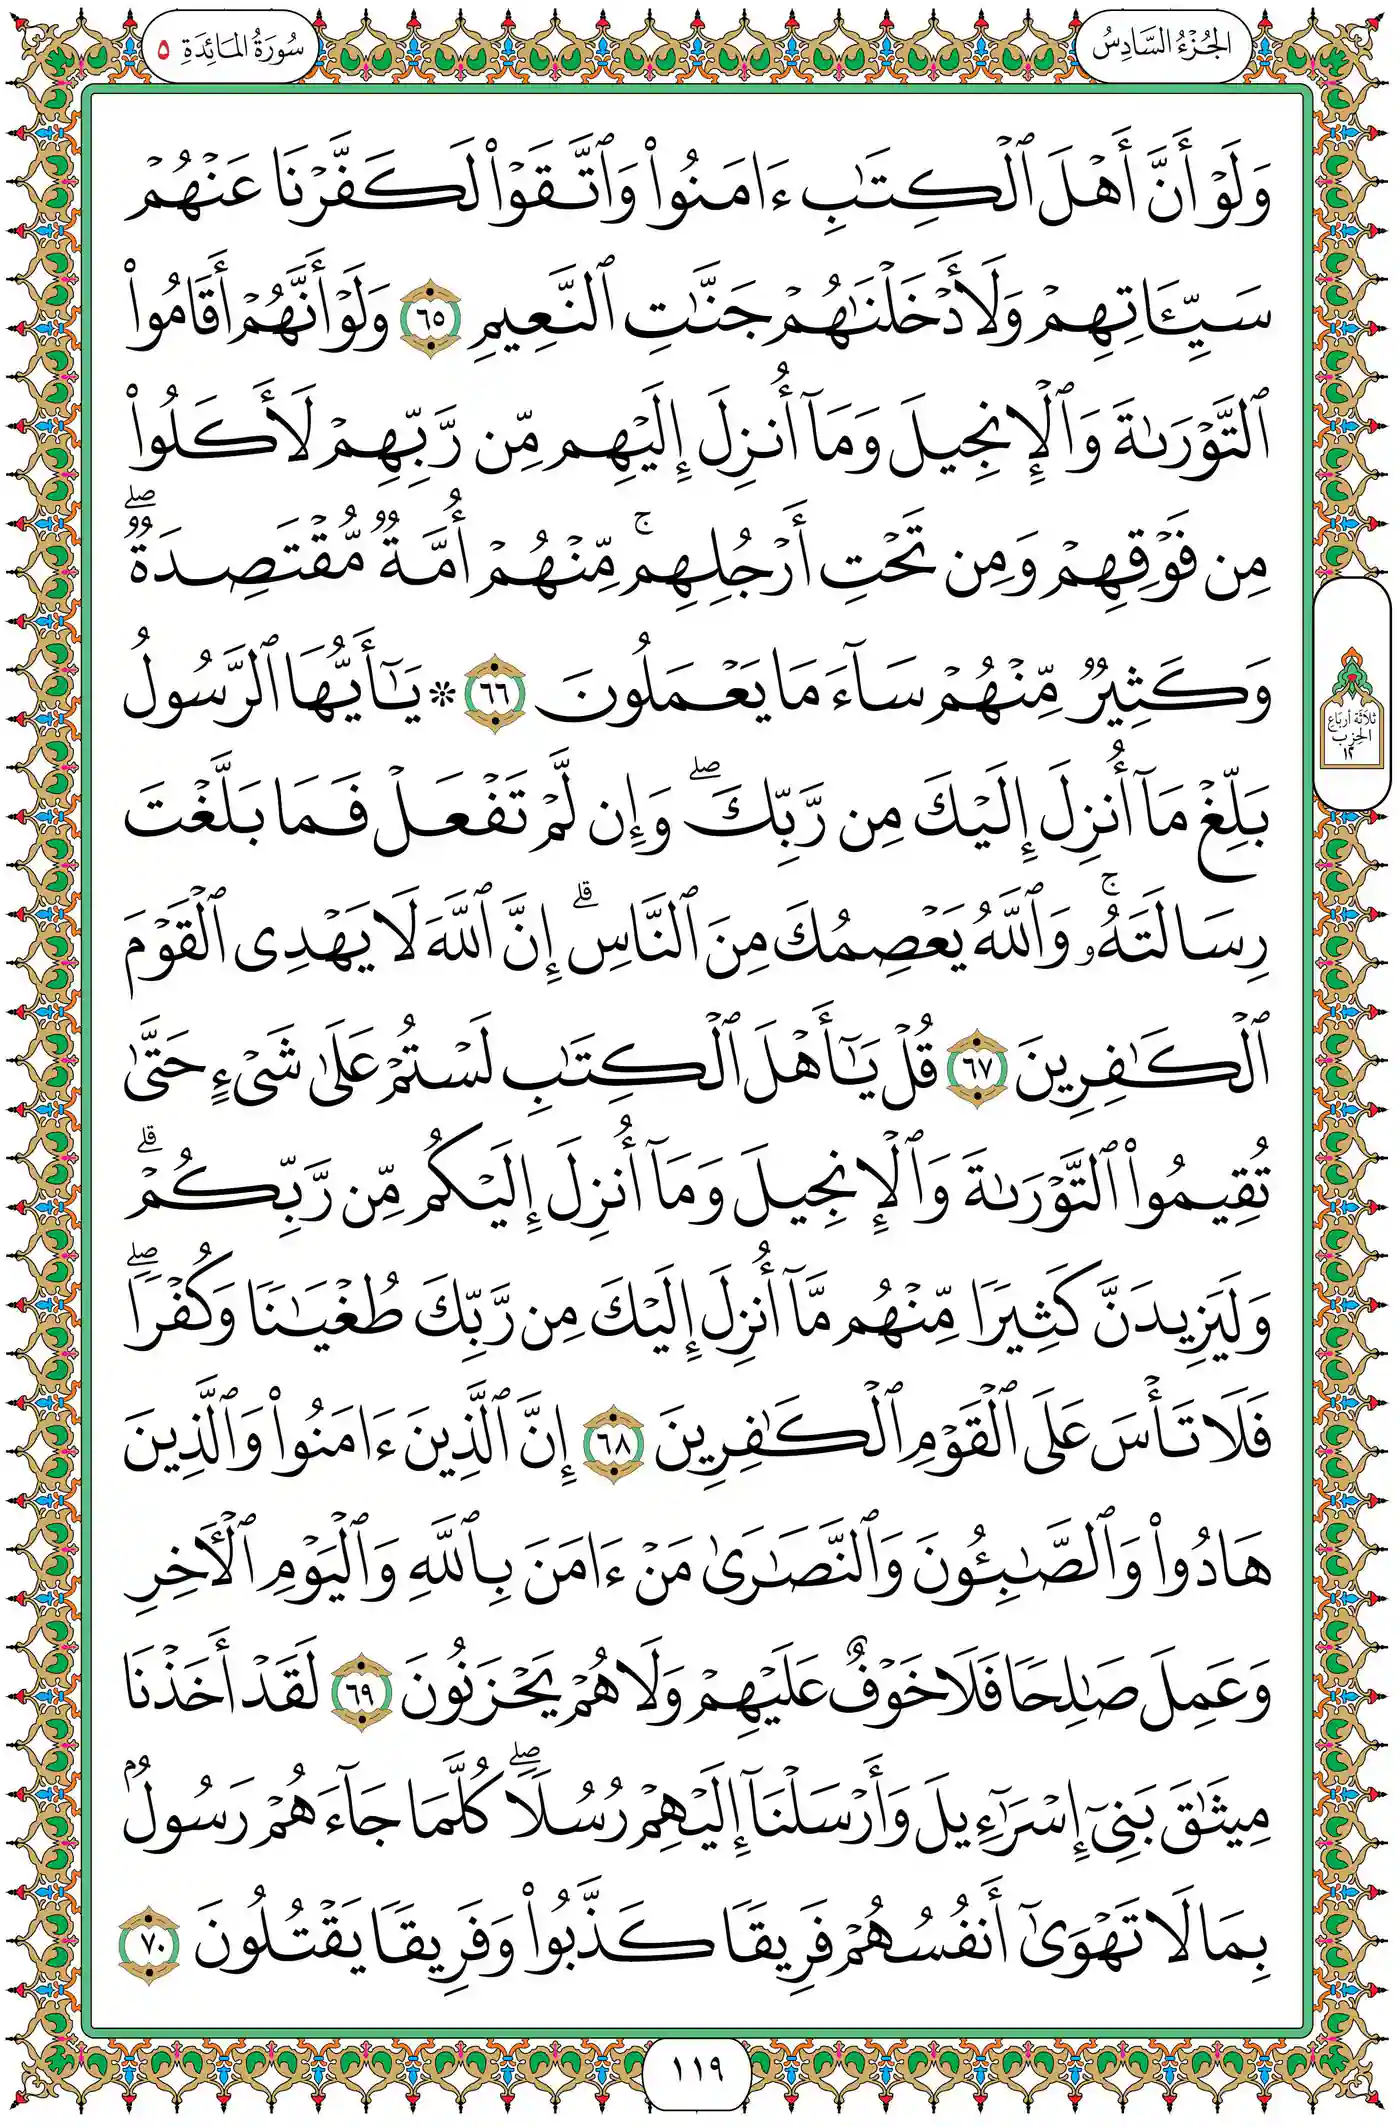 الجُزْءُ السَّادِسُ
سُورَةُ المَائِدَةِ ٥
وَلَوْ أَنَّ أَهْلَ ٱلْكِتَٰبِ ءَامَنُوا۟ وَٱتَّقَوْا۟ لَكَفَّرْنَا عَنْهُمْ
سَيِّـَٔاتِهِمْ وَلَأَدْخَلْنَٰهُمْ جَنَّٰتِ ٱلنَّعِيمِ ٦٥ وَلَوْ أَنَّهُمْ أَقَامُوا۟
ٱلتَّوْرَىٰةَ وَٱلْإِنجِيلَ وَمَآ أُنزِلَ إِلَيْهِم مِّن رَّبِّهِمْ لَأَكَلُوا۟
مِن فَوْقِهِمْ وَمِن تَحْتِ أَرْجُلِهِم ۚ مِّنْهُمْ أُمَّةٌ مُّقْتَصِدَةٌ ۖ
وَكَثِيرٌ مِّنْهُمْ سَآءَ مَا يَعْمَلُونَ ٦٦ * يَٰٓأَيُّهَا ٱلرَّسُولُ
بَلِّغْ مَآ أُنزِلَ إِلَيْكَ مِن رَّبِّكَ ۖ وَإِن لَّمْ تَفْعَلْ فَمَا بَلَّغْتَ
رِسَالَتَهُۥ ۚ وَٱللَّهُ يَعْصِمُكَ مِنَ ٱلنَّاسِ ۗ إِنَّ ٱللَّهَ لَا يَهْدِى ٱلْقَوْمَ
ٱلْكَٰفِرِينَ ٦٧ قُلْ يَٰٓأَهْلَ ٱلْكِتَٰبِ لَسْتُمْ عَلَىٰ شَىْءٍ حَتَّىٰ
تُقِيمُوا۟ ٱلتَّوْرَىٰةَ وَٱلْإِنجِيلَ وَمَآ أُنزِلَ إِلَيْكُم مِّن رَّبِّكُمْ ۗ
وَلَيَزِيدَنَّ كَثِيرًا مِّنْهُم مَّآ أُنزِلَ إِلَيْكَ مِن رَّبِّكَ طُغْيَٰنًا وَكُفْرًا ۖ
فَلَا تَأْسَ عَلَى ٱلْقَوْمِ ٱلْكَٰفِرِينَ ٦٨ إِنَّ ٱلَّذِينَ ءَامَنُوا۟ وَٱلَّذِينَ
هَادُوا۟ وَٱلصَّٰبِـُٔونَ وَٱلنَّصَٰرَىٰ مَنْ ءَامَنَ بِٱللَّهِ وَٱلْيَوْمِ ٱلْءَاخِرِ
وَعَمِلَ صَٰلِحًا فَلَا خَوْفٌ عَلَيْهِمْ وَلَا هُمْ يَحْزَنُونَ ٦٩ لَقَدْ أَخَذْنَا
مِيثَٰقَ بَنِىٓ إِسْرَٰٓءِيلَ وَأَرْسَلْنَآ إِلَيْهِمْ رُسُلًا ۖ كُلَّمَا جَآءَهُمْ رَسُولٌۢ
بِمَا لَا تَهْوَىٰٓ أَنفُسُهُمْ فَرِيقًا كَذَّبُوا۟ وَفَرِيقًا يَقْتُلُونَ ٧٠
ثَلاثَة أربَاع
الحِزب
١٢
١١٩